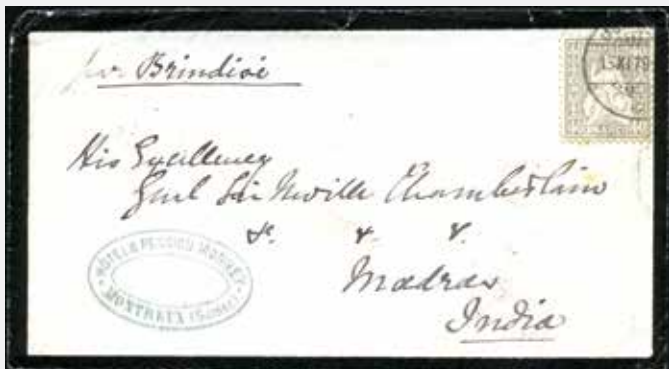 per Brindisi
His Excellency
Genl Sir Neville Chamberlain
&. &. &.
Madras
India
HOTEL & PENSION MONNEY
MONTREUX (Suisse)
13 XI 79